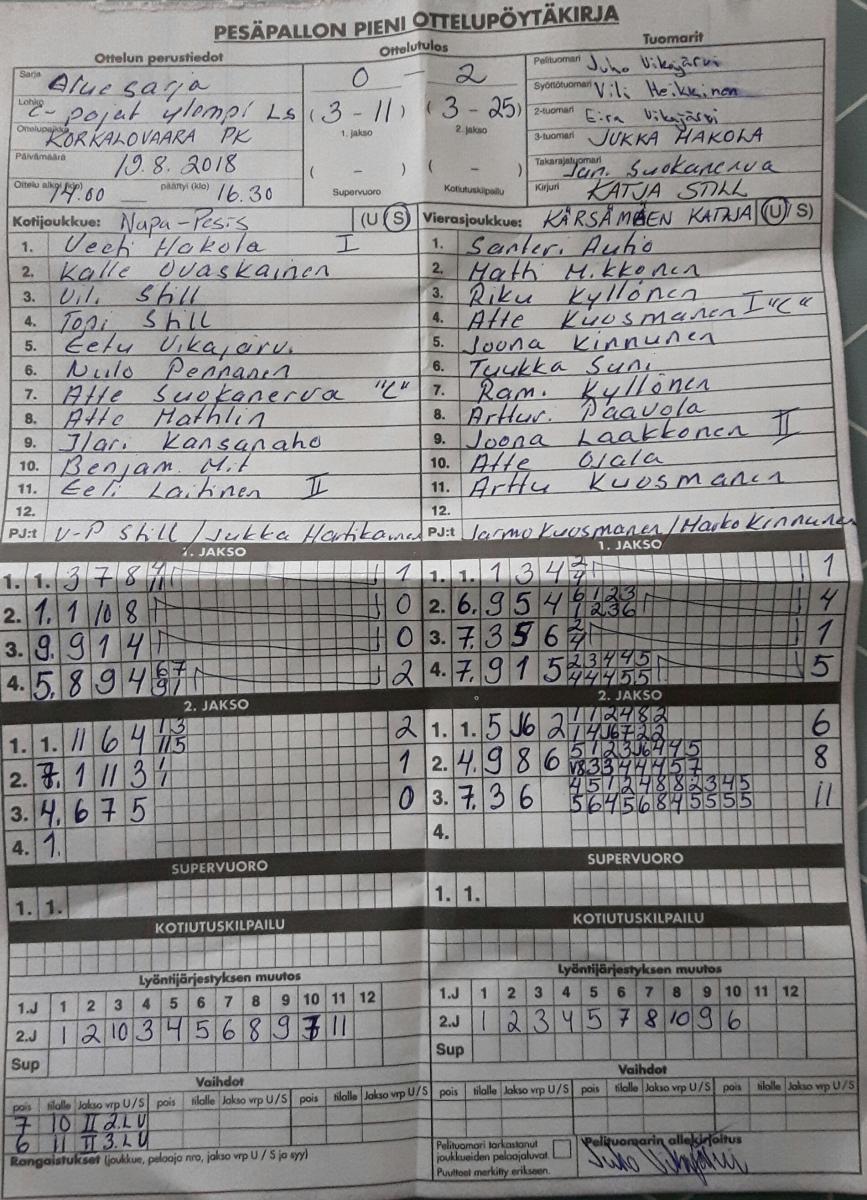 PESÄPALLON PIENI OTTELUPÖYTÄKIRJA
Ottelun perustiedot
Ottelutulos
Tuomarit
Sarja Aluesarja
0 - 2
Pelituomari Juho Vikajärvi
Lohko C-pojat ylempi LS
(3 - 11) (3 - 25)
Syöttötuomari Vili Heikkinen
Ottelupaikka KORKALOVAARA PK
1. jakso 2. jakso
2-tuomari Eira Vikajärvi
3-tuomari JUKKA HAKOLA
Päivämäärä 19.8.2018
( - ) ( - )
Takarajatuomari Jan. Suokanerva
Ottelu alkoi (klo) 14.00 päättyi (klo) 16.30
Supervuoro Kotiutuskilpailu
Kirjuri KATJA STILL
Kotijoukkue: Napa-Pesis (U S)
1. Veeti Hakola I
2. Kalle Ovaskainen
3. Vili Still
4. Topi Still
5. Eetu Vikajärvi
6. Niilo Pennanen
7. Atte Suokanerva "C"
8. Atte Mathlin
9. Ilari Kansanaho
10. Benjam. Mit
11. Eeli Laitinen II
12.
PJ:t V-P Still / Jukka Hartikainen
Vierasjoukkue: KÄRSÄMÄEN KATAJA (U/S)
1. Santeri Autio
2. Matti Mikkonen
3. Riku Kyllönen
4. Atte Kuosmanen I "C"
5. Joona Kinnunen
6. Tuukka Suni
7. Rami Kyllönen
8. Artturi Paavola
9. Joona Laakkonen II
10. Atte Ojala
11. Arttu Kuosmanen
12.
PJ:t Jarmo Kuosmanen / Marko Kinnunen
1. JAKSO
1. 1. 3 7 8 4 11 1
2. 1. 1 10 8 0
3. 9. 9 1 4 0
4. 5. 8 9 4 6 7 9 1 2
1. JAKSO
1. 1. 1 3 4 2 4 1
2. 6. 9 5 4 6 1 2 3 1 2 3 6 4
3. 7. 3 5 6 2 4 1
4. 7. 9 1 5 2 3 4 4 5 4 4 4 5 5 5
2. JAKSO
1. 1. 11 6 4 1 3 11 5 2
2. 7. 1 11 3 1 1 1
3. 4. 6 7 5 0
4. 1.
2. JAKSO
1. 1. 5 J6 2 1 1 2 4 8 2 1 4 J6 7 2 2 6
2. 4. 9 8 6 5 1 2 3 J6 4 4 5 V8 3 3 4 4 4 5 7 8
3. 7. 3 6 4 5 1 2 4 8 8 2 3 4 5 5 6 4 5 6 8 4 5 5 5 5 11
4.
SUPERVUORO
1. 1.
SUPERVUORO
1. 1.
KOTIUTUSKILPAILU
KOTIUTUSKILPAILU
Lyöntijärjestyksen muutos
1.J 1 2 3 4 5 6 7 8 9 10 11 12
2.J 1 2 10 3 4 5 6 8 9 7 11
Sup
Lyöntijärjestyksen muutos
1.J 1 2 3 4 5 6 7 8 9 10 11 12
2.J 1 2 3 4 5 7 8 10 9 6
Sup
Vaihdot
pois tilalle Jakso vrp U/S pois tilalle Jakso vrp U/S pois tilalle Jakso vrp U/S
7 10 II 2.L U
6 11 II 3.L U
Vaihdot
pois tilalle Jakso vrp U/S pois tilalle Jakso vrp U/S pois tilalle Jakso vrp U/S
Rangaistukset (joukkue, pelaaja nro, jakso vrp U / S ja syy)
Pelituomari tarkastanut
joukkueiden pelaajaluvat.
Puutteet merkitty erikseen.
Pelituomarin allekirjoitus
Juho Vikajärvi